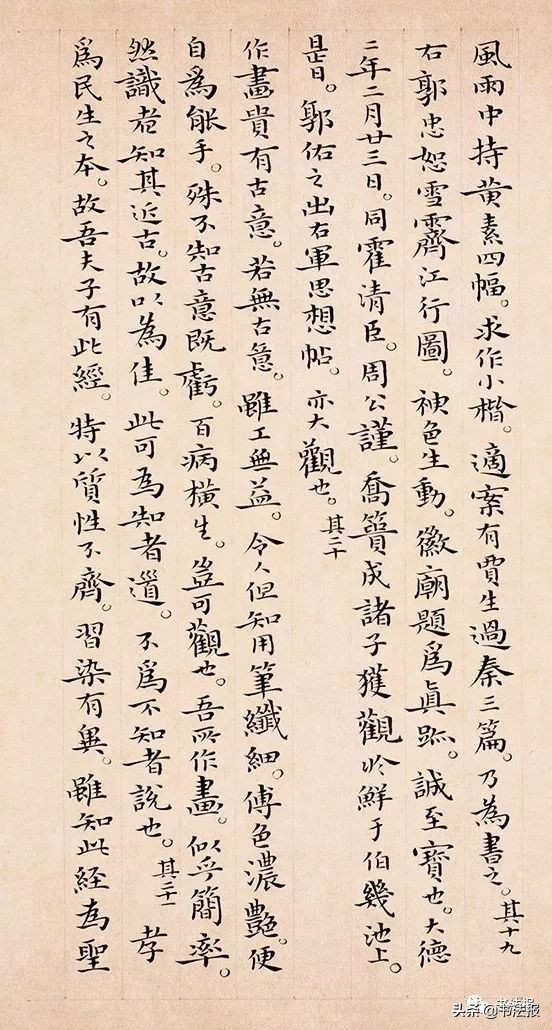 風雨中持黄素四幅。求作小楷。適案有賈生過秦三篇。乃為書之。其十九
右郭忠恕雪霽江行圖。神色生動。徽廟題爲真跡。誠至寶也。大德
二年二月廿三日。同霍清臣。周公謹。喬簣成諸子獲觀於鮮于伯幾池上。
是日。郭佑之出右軍思想帖。亦大觀也。其二十
作畫貴有古意。若無古意。雖工無益。今人但知用筆纖細。傅色濃艷。便
自爲能手。殊不知古意既虧。百病橫生。豈可觀也。吾所作畫。似乎簡率。
然識者知其近古。故以為佳。此可為知者道。不爲不知者說也。其二十一 孝
爲民生之本。故吾夫子有此經。特以質性不齊。習染有異。雖知此經為聖
头条@书法报
书法报